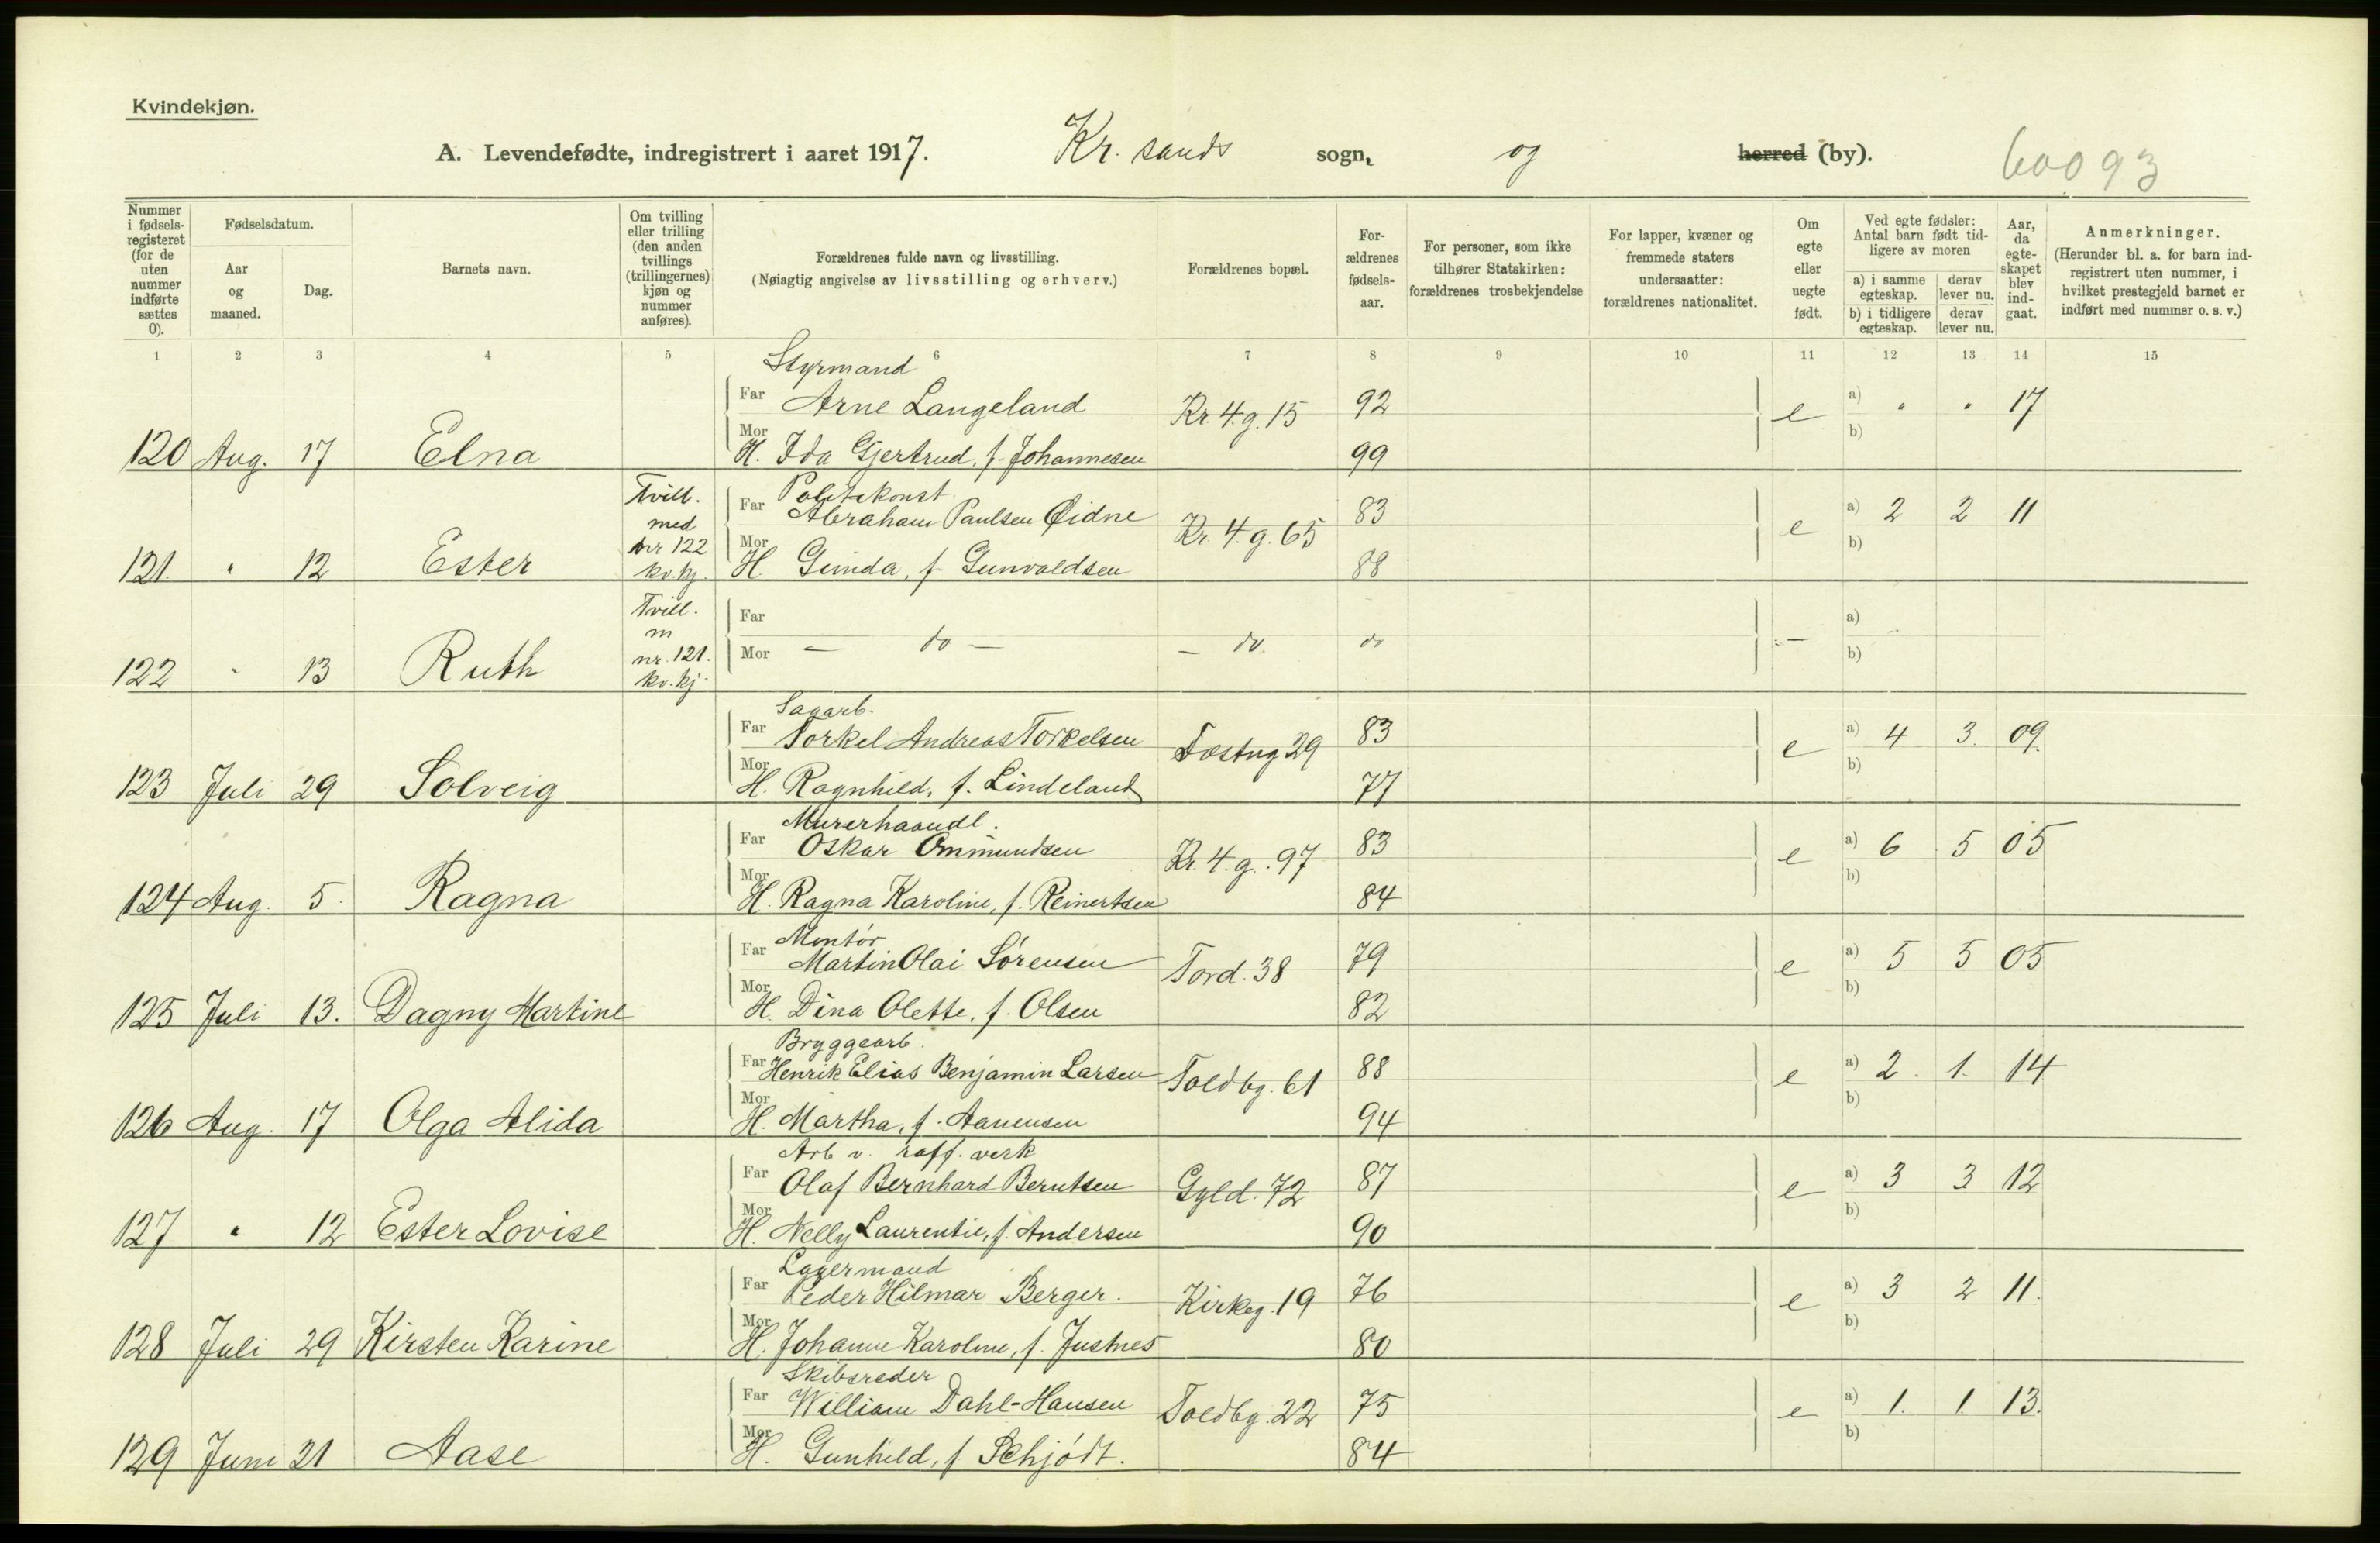 Kvindekjøn.
A. Levendefødte, indregistrert i aaret 1917. Kr. sands sogn, og herred (by). 60093
Nummer i fødselsregisteret (for de uten nummer indførte sættes 0).
Fødselsdatum.
Aar og maaned.
Dag.
Barnets navn.
Om tvilling eller trilling (den anden tvillings (trillingernes) kjøn og nummer anføres).
Forældrenes fulde navn og livsstilling.
(Nøiagtig angivelse av livsstilling og erhverv.)
Forældrenes bopæl.
Forældrenes fødselsaar.
For personer, som ikke tilhører Statskirken: forældrenes trosbekjendelse
For lapper, kvæner og fremmede staters undersaatter: forældrenes nationalitet.
Om egte eller uegte født.
Ved egte fødsler: Antal barn født tidligere av moren
a) i samme egteskap. derav lever nu.
b) i tidligere egteskap. derav lever nu.
Aar, da egteskapet blev indgaat.
Anmerkninger.
(Herunder bl. a. for barn indregistrert uten nummer, i hvilket prestegjeld barnet er indført med nummer o. s. v.)
1 2 3 4 5 6 7 8 9 10 11 12 13 14 15
Styrmand
Far Arne Langeland Kr. 4. g. 15 92 e a) " " 17
120 Aug. 17 Elna Mor H. Ida Gjertrud, f. Johannesen 99 b)
Tvill. med nr 122 kv. kj.
Politikonst.
Far Abraham Paulsen Øidne Kr. 4. g. 65 83 e a) 2 2 11
121. " 12 Ester Mor H. Gunda, f. Gunvaldsen 88 b)
Tvill. m nr. 121. kv. kj.
122 " 13 Ruth Far Mor — do — — do. do — a) b)
Sagarb.
Far Torkel Andreas Torkelsen Fæstng 29 83 e a) 4 3. 09.
123 Juli 29 Solveig Mor H. Ragnhild, f. Lindeland 77 b)
Murerhaandl.
Far Oskar Ommundsen Kr. 4. g. 97 83 e a) 6 5 05
124 Aug. 5. Ragna Mor H. Ragna Karoline, f. Reinertsen 84 b)
Montør
Far Martin Olai Sørensen Tord. 38 79 e a) 5 5 05
125 Juli 13. Dagny Martine Mor H. Dina Olette, f. Olsen 82 b)
Bryggearb.
Far Henrik Elias Benjamin Larsen Toldbg. 61 88 e a) 2. 1. 14
126 Aug. 17 Olga Alida Mor H. Martha, f. Aanensen 94 b)
Arb v. raff. verk
Far Olaf Bernhard Berntsen Gyld. 72 87 e a) 3 3 12
127 " 12 Ester Lovise Mor H. Nelly Laurentie, f. Andersen 90 b)
Lagermand
Far Peder Hilmar Berger. Kirkeg. 19 76 e a) 3 2 11.
128 Juli 29 Kirsten Karine Mor H. Johanne Karoline, f. Justnes 80 b)
Skibsreder
Far William Dahl-Hansen Toldbg. 22 75 e a) 1. 1. 13.
129 Juni 21 Aase Mor H. Gunhild, f Schjødt. 84 b)